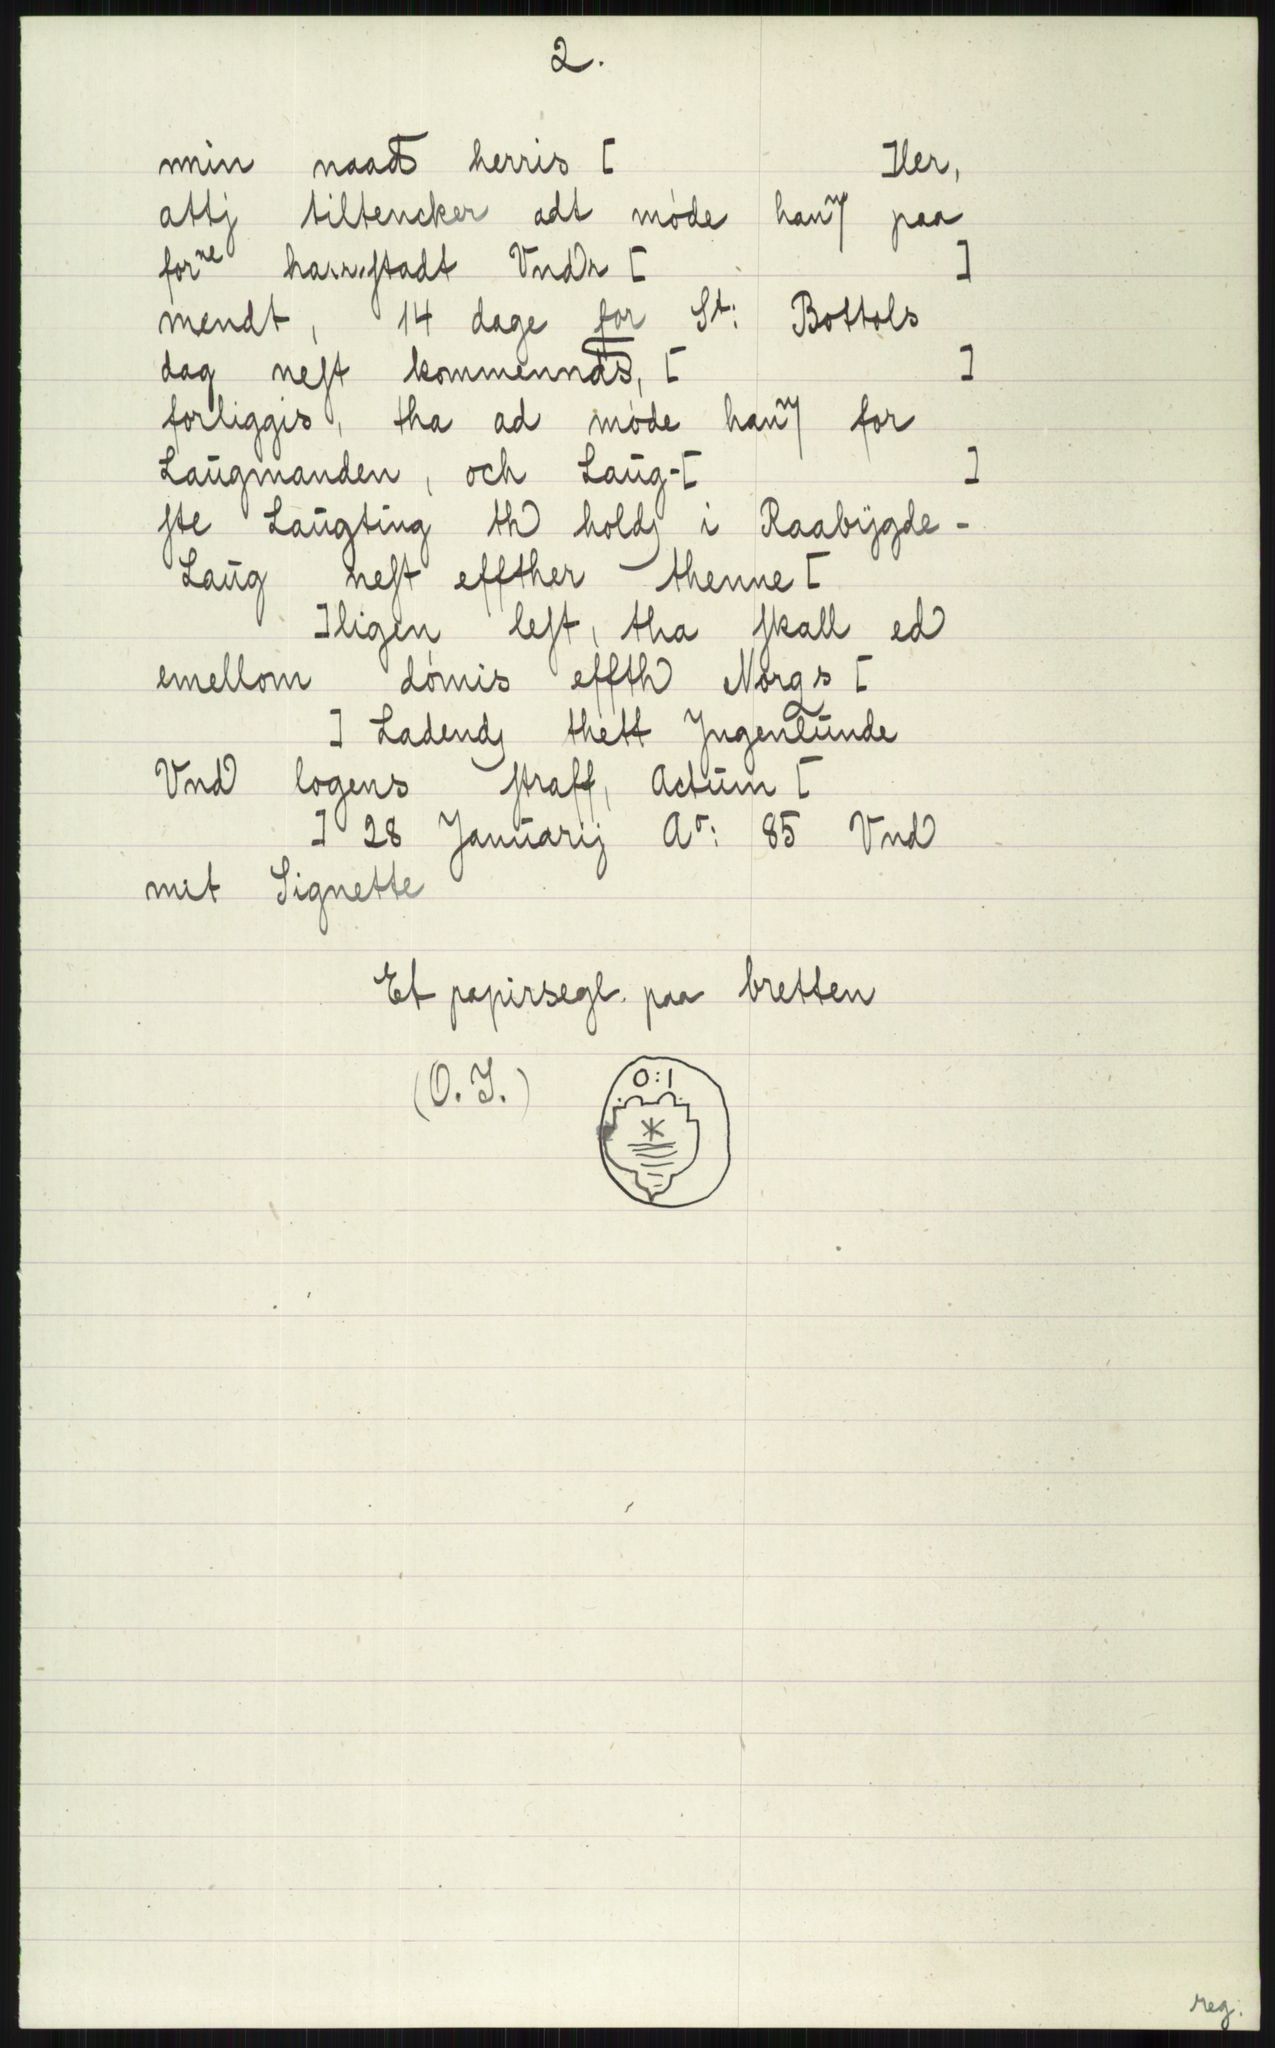 2.
min naads herris [ ]ler,
attj tiltencker adt møde hanm paa
forne harrstadt Vndr [ ]
mendt, 14 dage for St: Bottols
dag neſt kommennds, [ ]
forliggis, tha ad møde hanm for
Laugmanden, och Laug-[ ]
ſte Laugting th holdj i Raabÿgde-
Laug neſt effther thenne [
]ligen leſt, tha ſkall ed
emellom dømis effth Norgs [
] Ladendj thett Jngenlunde
Vnd logens ſtraff, Actum [
] 28 Januarij Ao: 85 Vnd
mit Signette
Et papirsegl paa bretten
(O. I.)
O:I
reg.